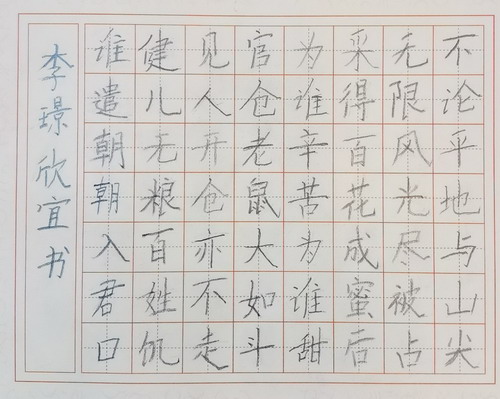 不论平地与山尖
无限风光尽被占
采得百花成蜜后
为谁辛苦为谁甜
官仓老鼠大如斗
见人开仓亦不走
健儿无粮百姓饥
谁遣朝朝入君口
李璟欣宜书